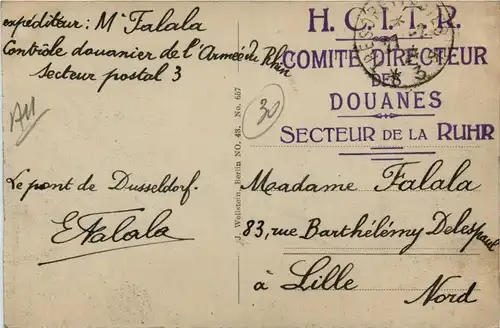 expéditeur: Mr Falala
Contrôle douanier de l'Armée du Rhin
Secteur postal 3
Le pont de Dusseldorf.
EFalala
J. Wollstein, Berlin NO. 43. No. 657
30
H. C. I. T. R.
COMITÉ DIRECTEUR
DES
DOUANES
SECTEUR DE LA RUHR
3
Madame Falala
83, rue Barthélémy Delespaul
à Lille
Nord